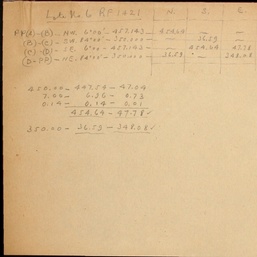 Lote No. 6 RF 1421 N. S. E.
PP(A)-(B)- NW. 6°00'- 457.143 - 454.64 - —
(B)-(C)- SW. 84°00'- 350.00 - — 36.59 —
(C)-(D)- SE. 6°00 - 457.143 - — 454.64 47.78
(D-PP)- NE. 84°00'- 350.00 - 36.59 — 348.08
450.00 - 447.54 - 47.04
7.00 - 6.96 - 0.73
0.14 - 0.14 - 0.01
454.64 - 47.78 ✓
350.00 - 36.59 - 348.08 ✓